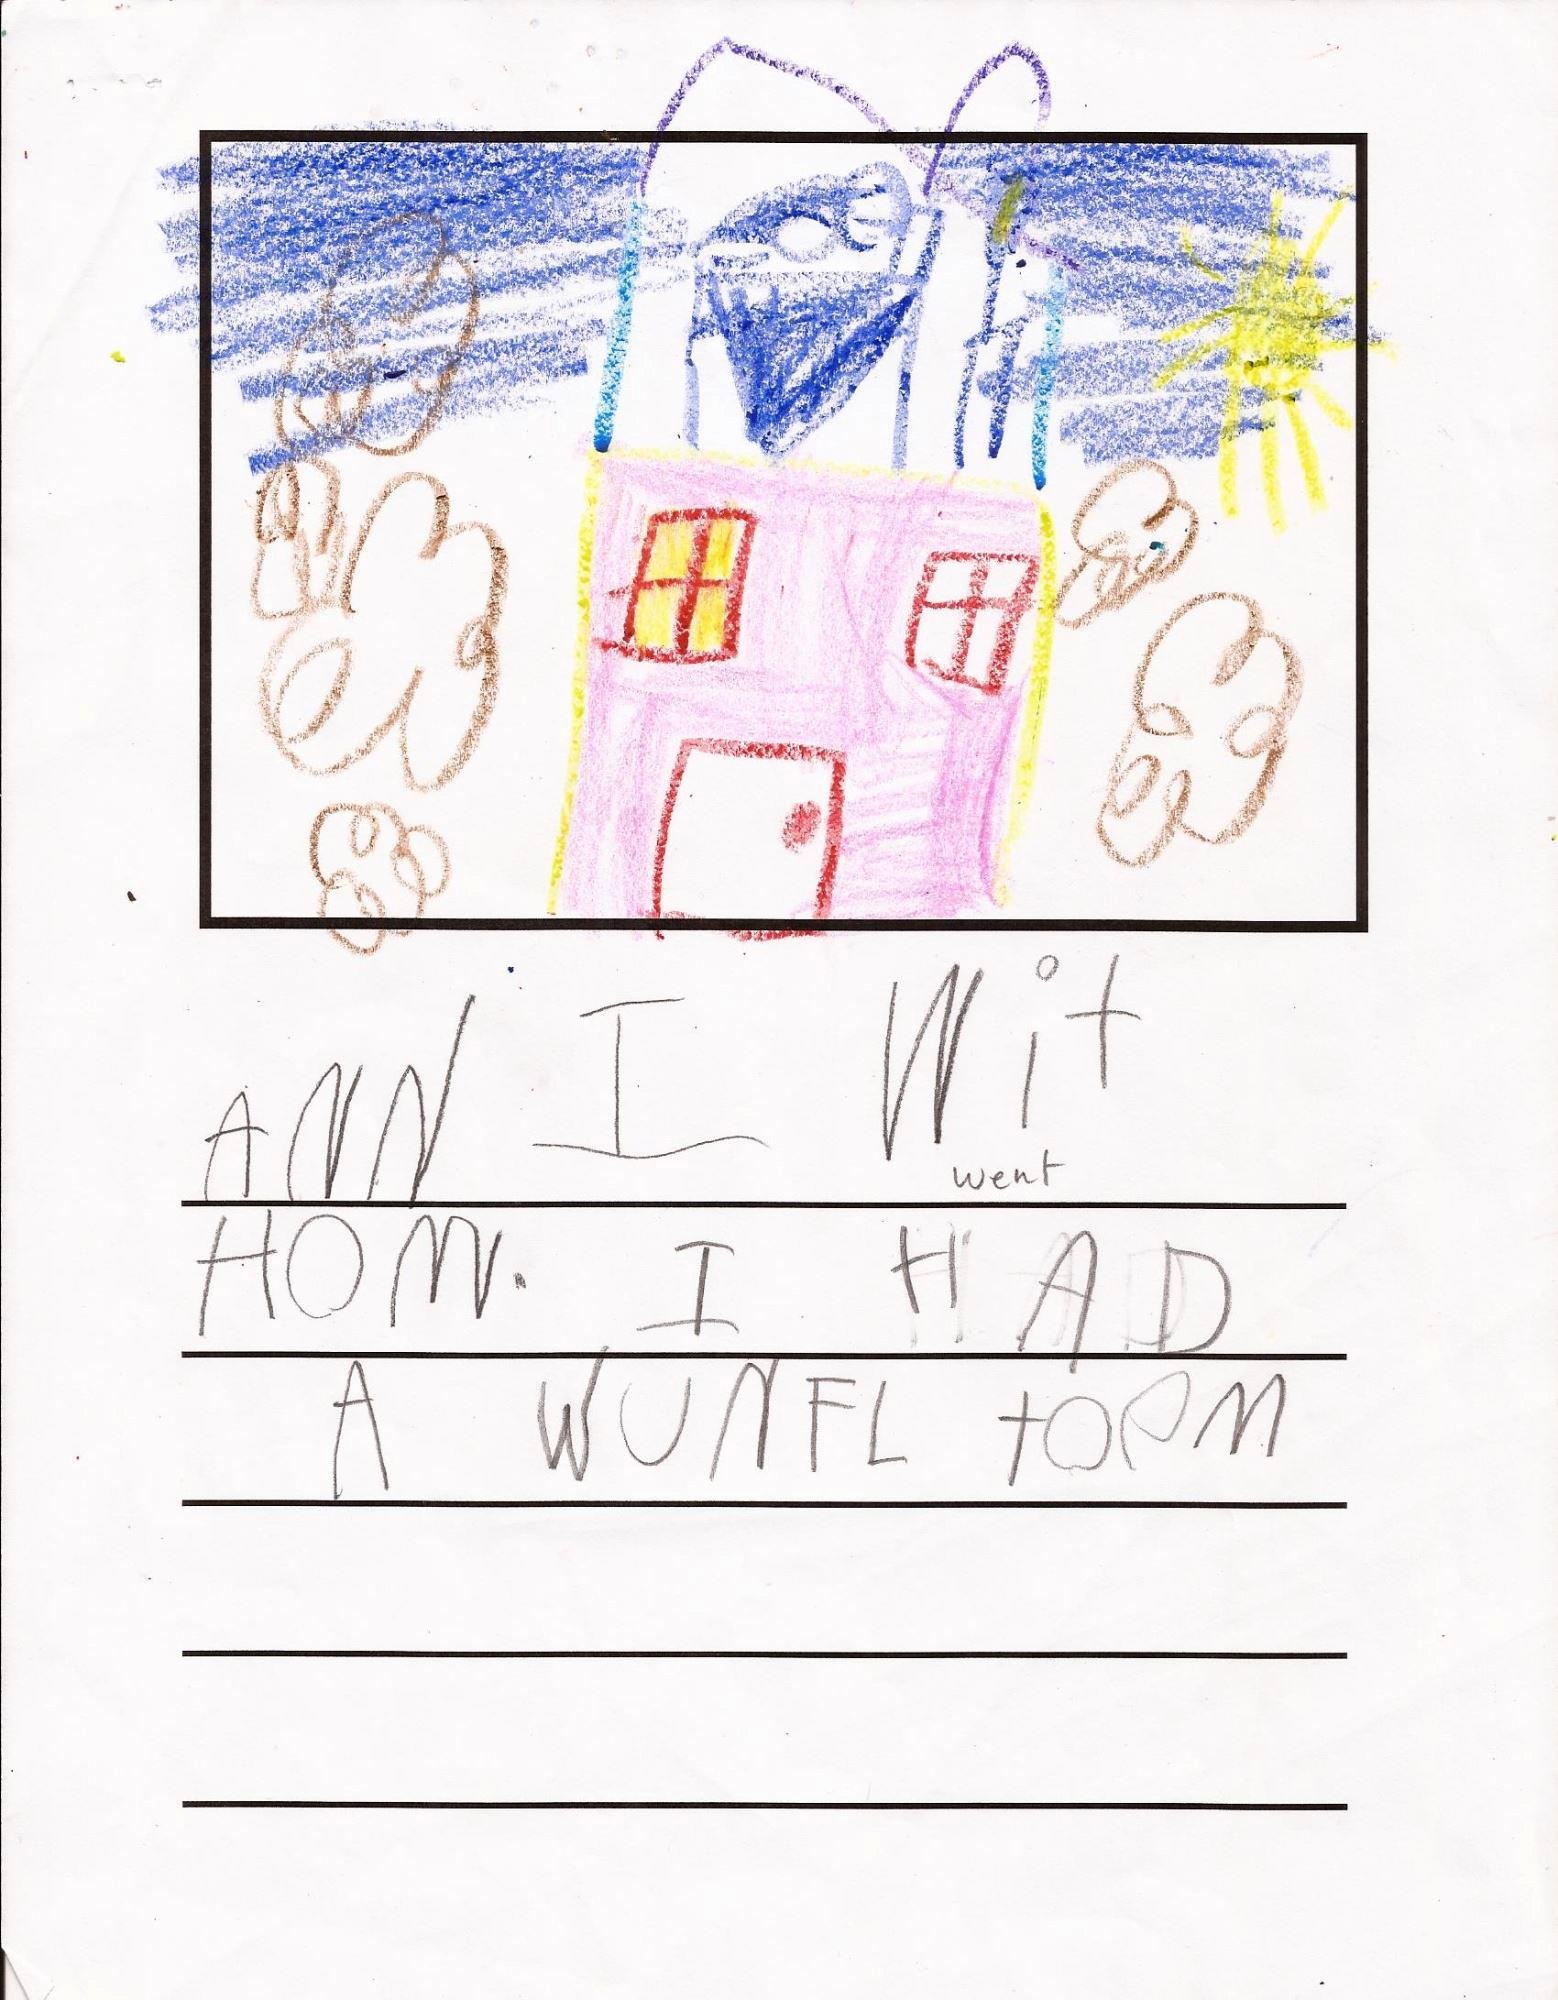 ANN I Wit
went
HOM. I HAD
A WUNFL tOPM